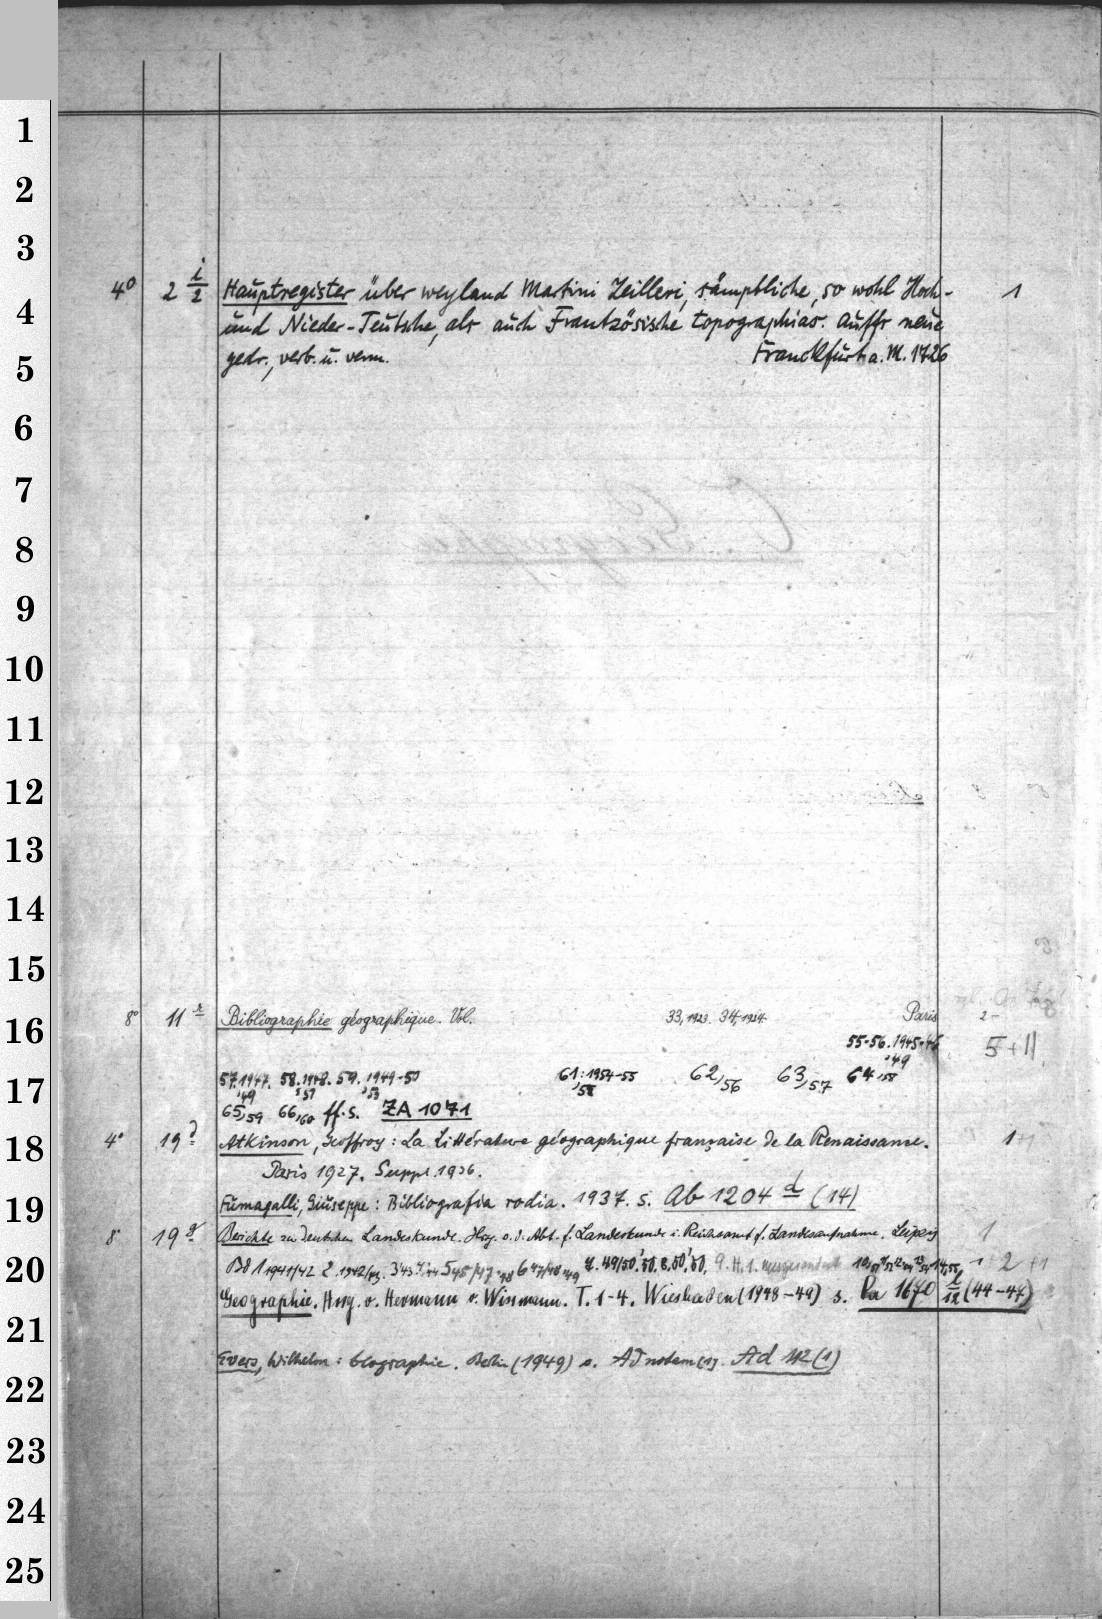 1
2
3
4° 2 i/2 Hauptregister über weyland Martini Zeilleri, sämptliche, so wohl Hoch- 1
4
und Nieder-Teutsche, als auch Frantzösische topographias. Auffs neue
5
gedr., verb. u. verm. Franckfurt a. M. 1726
6
7
8
9
10
11
12
13
14
15
8° 11 Bibliographie géographique. Vol. 33, 1923. 34, 1924. Paris 2-
16
55-56. 1945-46 5+11
,49
17
57. 1947. 58. 1948. 59. 1949-50 61: 1954-55 62,56 63,57 64,58
,49 ,51 ,53 ,58
65,59 66,60 ff. s. ZA 1071
18
4° 19 Atkinson, Geoffroy: La Littérature géographique française de la Renaissance. 1+1
Paris 1927. Suppl. 1936.
19
Fumagalli, Giuseppe: Bibliografia rodia. 1937. s. Ab 1204 d (14)
8° 19 Berichte zur Deutschen Landeskunde. Hrsg. v. d. Abt. f. Landeskunde i. Reichsamt f. Landesaufnahme. Leipzig 1
20
Bd 1 1941/42 2. 1942/43. 3'43 4,'44 5 45/47-48 6 47/48-49 7. 49/50,'50. 8. 50,'50, 9. H. 1. +2 +1
Geographie. Hrsg. v. Hermann v. Wissmann. T. 1-4. Wiesbaden (1948-49) s. Pa 1670 l/12 (44-47)
21
Evers, Wilhelm: Geographie. Berlin (1949) s. Ad notam (1). Ad 112 (1)
22
23
24
25